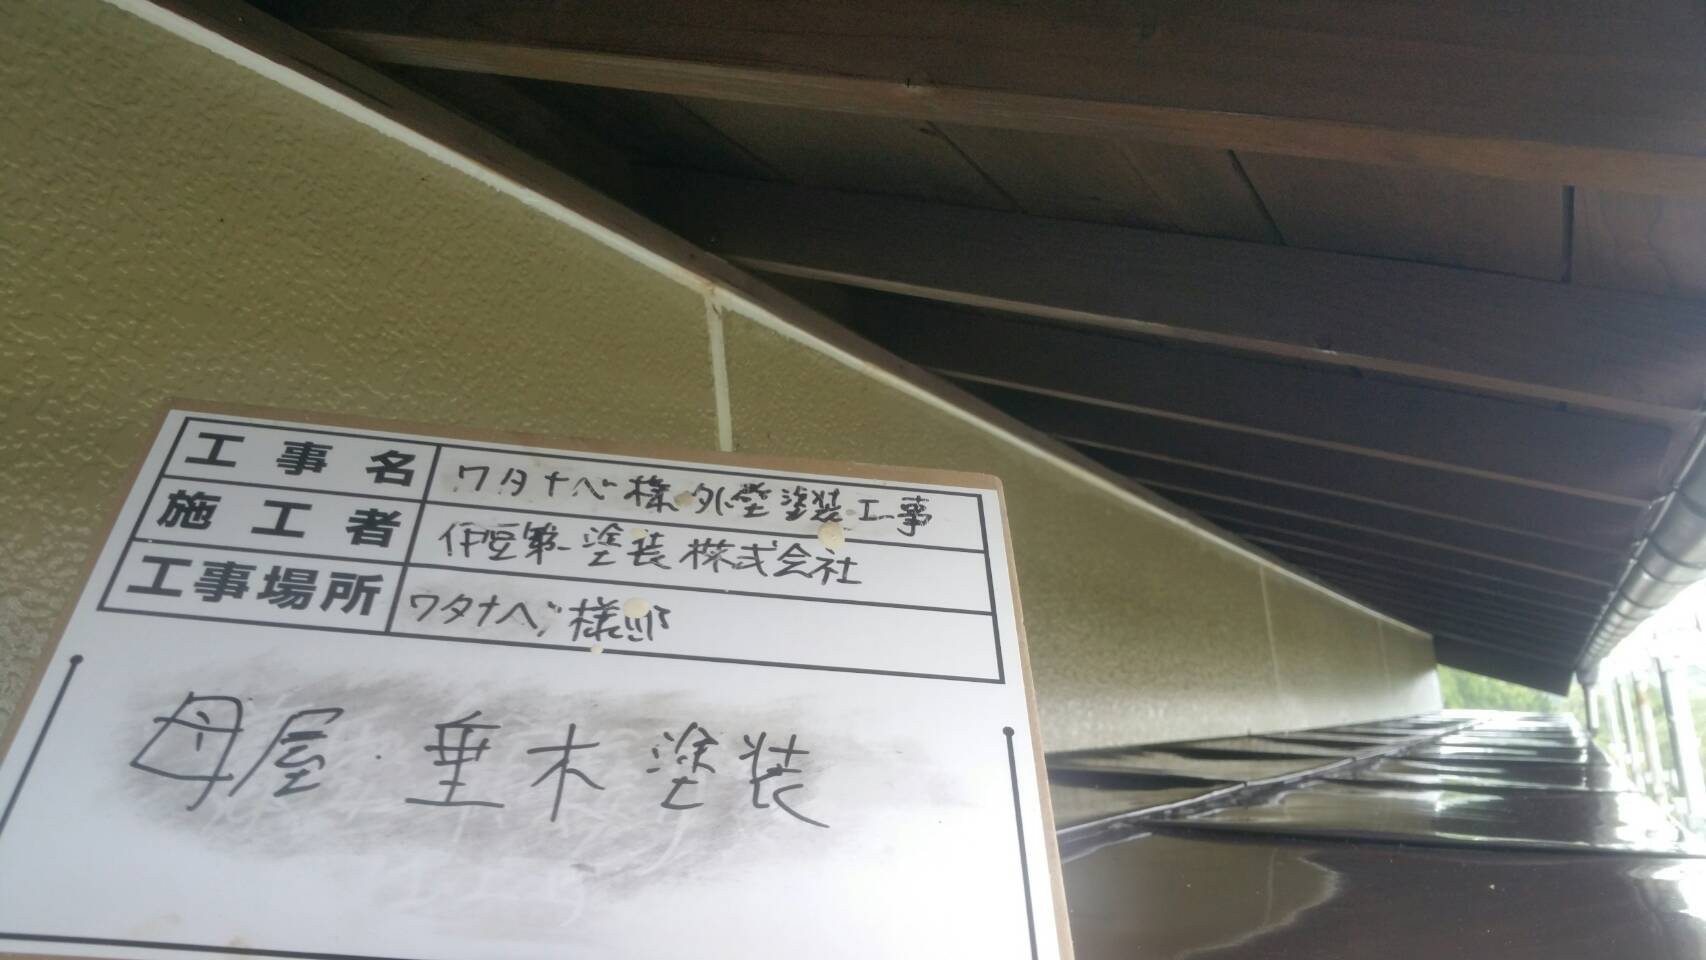 工事名 ワタナベ様外壁塗装工事
施工者 伊豆第一塗装株式会社
工事場所 ワタナベ様邸
母屋・垂木塗装